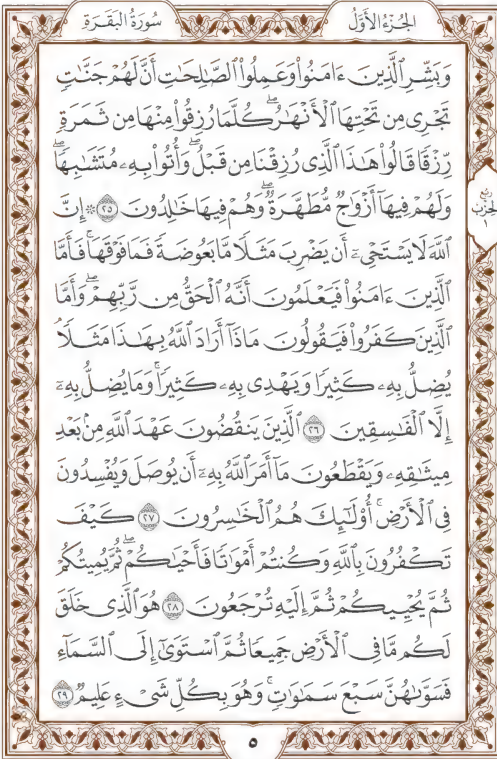 الجُزْءُ الأَوَّلُ
سُورَةُ البَقَرَةِ
وَبَشِّرِ ٱلَّذِينَ ءَامَنُوا۟ وَعَمِلُوا۟ ٱلصَّـٰلِحَـٰتِ أَنَّ لَهُمْ جَنَّـٰتٍ
تَجْرِى مِن تَحْتِهَا ٱلْأَنْهَـٰرُ ۖ كُلَّمَا رُزِقُوا۟ مِنْهَا مِن ثَمَرَةٍ
رِّزْقًا قَالُوا۟ هَـٰذَا ٱلَّذِى رُزِقْنَا مِن قَبْلُ ۖ وَأُتُوا۟ بِهِۦ مُتَشَـٰبِهًا ۖ
وَلَهُمْ فِيهَآ أَزْوَٰجٌ مُّطَهَّرَةٌ ۖ وَهُمْ فِيهَا خَـٰلِدُونَ ٢٥ ۞ إِنَّ
ٱللَّهَ لَا يَسْتَحْىِۦٓ أَن يَضْرِبَ مَثَلًا مَّا بَعُوضَةً فَمَا فَوْقَهَا ۚ فَأَمَّا
ٱلَّذِينَ ءَامَنُوا۟ فَيَعْلَمُونَ أَنَّهُ ٱلْحَقُّ مِن رَّبِّهِمْ ۖ وَأَمَّا
ٱلَّذِينَ كَفَرُوا۟ فَيَقُولُونَ مَاذَآ أَرَادَ ٱللَّهُ بِهَـٰذَا مَثَلًا ۘ
يُضِلُّ بِهِۦ كَثِيرًا وَيَهْدِى بِهِۦ كَثِيرًا ۚ وَمَا يُضِلُّ بِهِۦٓ
إِلَّا ٱلْفَـٰسِقِينَ ٢٦ ٱلَّذِينَ يَنقُضُونَ عَهْدَ ٱللَّهِ مِنۢ بَعْدِ
مِيثَـٰقِهِۦ وَيَقْطَعُونَ مَآ أَمَرَ ٱللَّهُ بِهِۦٓ أَن يُوصَلَ وَيُفْسِدُونَ
فِى ٱلْأَرْضِ ۚ أُو۟لَـٰٓئِكَ هُمُ ٱلْخَـٰسِرُونَ ٢٧ كَيْفَ
تَكْفُرُونَ بِٱللَّهِ وَكُنتُمْ أَمْوَٰتًا فَأَحْيَـٰكُمْ ۖ ثُمَّ يُمِيتُكُمْ
ثُمَّ يُحْيِيكُمْ ثُمَّ إِلَيْهِ تُرْجَعُونَ ٢٨ هُوَ ٱلَّذِى خَلَقَ
لَكُم مَّا فِى ٱلْأَرْضِ جَمِيعًا ثُمَّ ٱسْتَوَىٰٓ إِلَى ٱلسَّمَآءِ
فَسَوَّىٰهُنَّ سَبْعَ سَمَـٰوَٰتٍ ۚ وَهُوَ بِكُلِّ شَىْءٍ عَلِيمٌ ٢٩
ربع
الحزب
١
٥